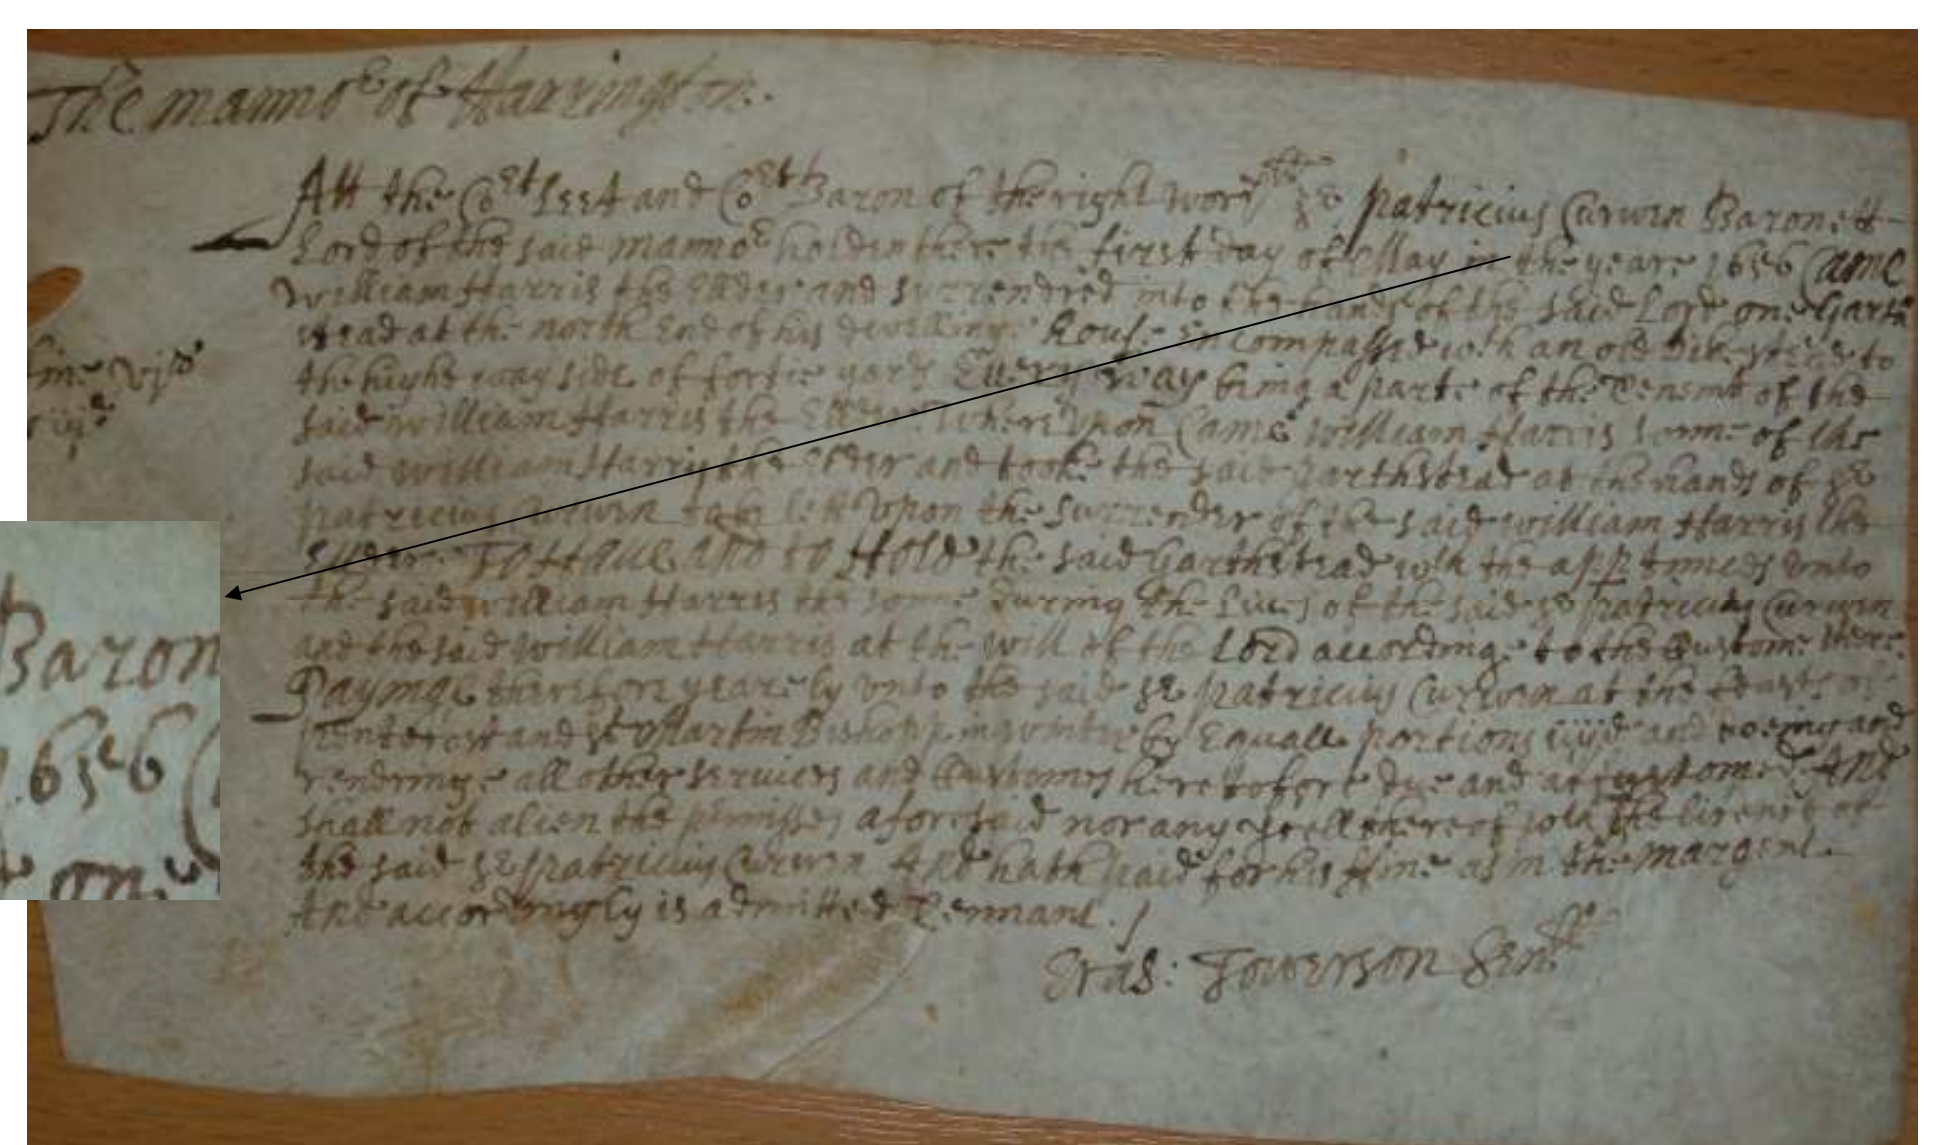 The manno^r of Harrington.
Att the Co^rt Leet and Co^rt Baron of the right wor^ff S^r Patricius Curwen Baronett
Lord of the said manno^r holden there the first day of May in the yeare 1656 Came
William Harris the Elder and surrendred into the hands of the said Lord one Garth
stead at the north End of his dwellinge house Encompassed wth an old dike to
the highe way side of fortie yards Every way being a parte of the Tenemt of the
said William Harris the Elder Whereupon Came William Harris sonne of the
said William Harris the Elder and tooke the said Garthstead at the hands of S^r
Patricius Curwen to be lett upon the surrender of the said William Harris the
Elder To Have and to Hold the said Garthstead wth the apptnncs unto
the said William Harris the sonne during the Lives of the said S^r Patricius Curwen
and the said William Harris at the will of the Lord accordinge to the Custome there
Paynge therefore yearely unto the said S^r Patricius Curwen at the feasts of
Pentecost and St Martin Bishopp in winter by Equall portions iiijd and doeing and
rendringe all other services and Customes heretofore due and accustomed And
shall not alien the pmisses aforesaid nor any pcell thereof wth the licence of
the said S^r Patricius Curwen And hath paid for his ffine as in the margent
And accordingly is admitted Tennant.
Eras: Towerson Sen^ff
fine vjs
iiijd
Baron
1656
one